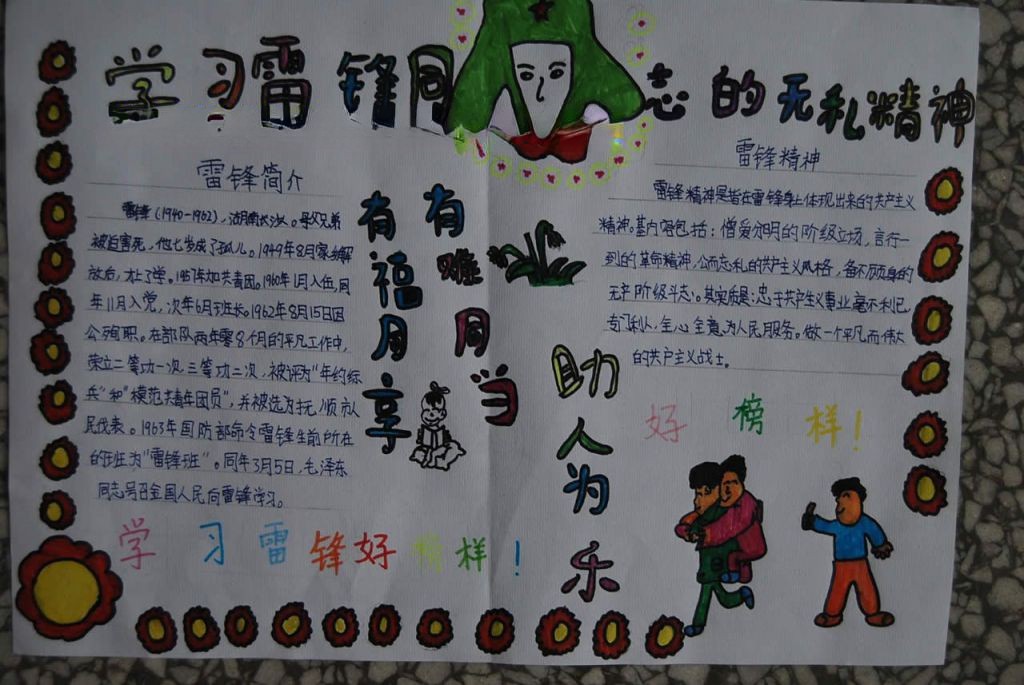 学习雷锋同志的无私精神
雷锋简介
雷锋(1940-1962),湖南长沙人。母父兄弟
被迫害死,他七岁成了孤儿。1949年8月家乡解
放后,才上了学。1957年加共青团。1960年1月入伍,同
年11月入党,次年6月班长。1962年8月15日因
公殉职。在部队两年零8个月的平凡工作中,
荣立二等功一次,三等功二次,被评为"年约标
兵"和"模范共青年团员",并被选为抚顺市人
民代表。1963年国防部命令雷锋生前所在
的班为"雷锋班"。同年3月5日,毛泽东
同志号召全国人民向雷锋学习。
有福同享
有难同当
助人为乐
雷锋精神
雷锋精神是指在雷锋身上体现出来的共产主义
精神。其内容包括:憎爱分明的阶级立场,言行一
到的革命精神,公而忘私的共产主义风格,奋不顾身的
无产阶级斗志。其实质是:忠于共产主义事业毫不利己
专门利人,全心全意为人民服务。做一个平凡而伟大
的共产主义战士。
好榜样!
学习雷锋好榜样!